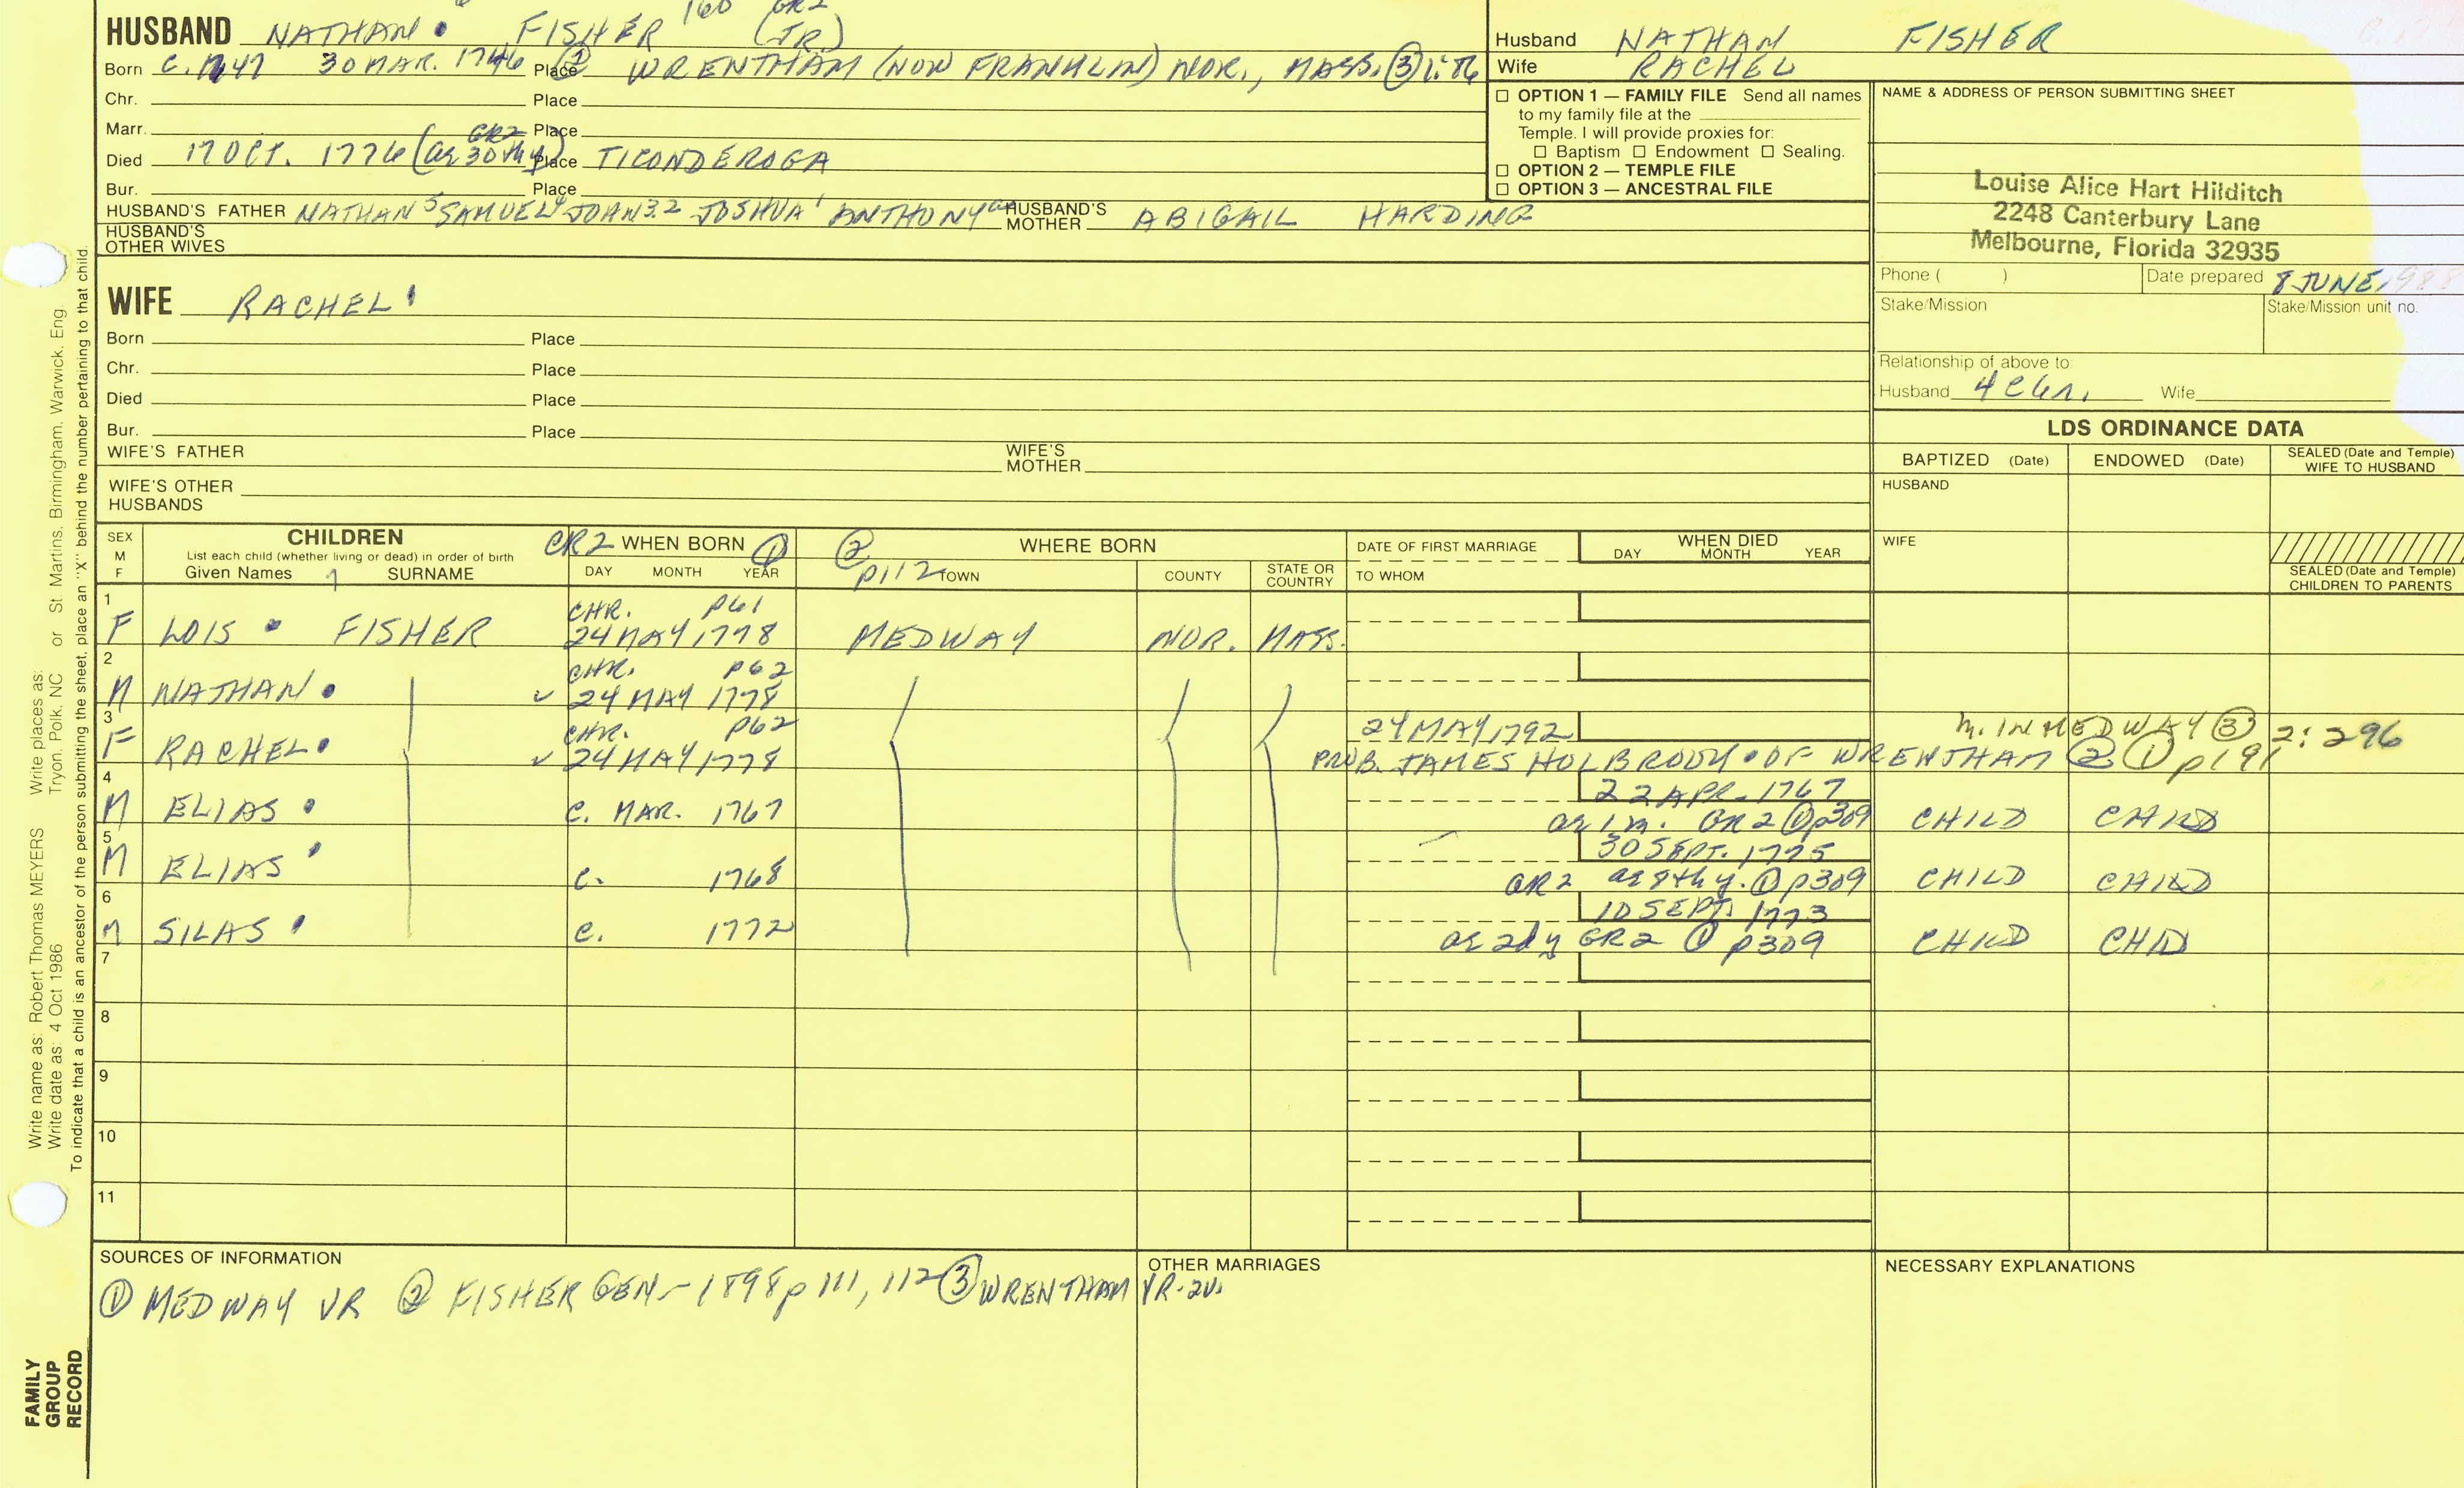 160 GR2
HUSBAND NATHAN FISHER (JR)
Born C. 1747 30 MAR. 1746 Place ② WRENTHAM (NOW FRANKLIN) NOR., MASS. ③ 1:86
Chr. Place
Marr. Place
Died 17 OCT. 1776 (as 30th y) GR2 Place TICONDEROGA
Bur. Place
HUSBAND'S FATHER NATHAN 5 SAMUEL 4 JOHN 3.2 JOSHUA 1 ANTHONY HUSBAND'S MOTHER ABIGAIL HARDING
HUSBAND'S OTHER WIVES
WIFE RACHEL
Born Place
Chr. Place
Died Place
Bur. Place
WIFE'S FATHER WIFE'S MOTHER
WIFE'S OTHER HUSBANDS
Husband NATHAN FISHER
Wife RACHEL
☐ OPTION 1 — FAMILY FILE Send all names
to my family file at the
Temple. I will provide proxies for:
☐ Baptism ☐ Endowment ☐ Sealing.
☐ OPTION 2 — TEMPLE FILE
☐ OPTION 3 — ANCESTRAL FILE
NAME & ADDRESS OF PERSON SUBMITTING SHEET
Louise Alice Hart Hilditch
2248 Canterbury Lane
Melbourne, Florida 32935
Phone ( ) Date prepared 8 JUNE, 1988
Stake/Mission Stake/Mission unit no.
Relationship of above to
Husband 4 C 6 r. Wife
LDS ORDINANCE DATA
BAPTIZED (Date) ENDOWED (Date) SEALED (Date and Temple) WIFE TO HUSBAND
HUSBAND
WIFE
SEALED (Date and Temple) CHILDREN TO PARENTS
SEX M F CHILDREN
List each child (whether living or dead) in order of birth
Given Names 7 SURNAME
CR2 WHEN BORN ①
DAY MONTH YEAR
② p112 WHERE BORN
TOWN COUNTY STATE OR COUNTRY
DATE OF FIRST MARRIAGE
TO WHOM
WHEN DIED
DAY MONTH YEAR
1 CHR. p61
F LOIS FISHER 24 MAY 1778 MEDWAY NOR. MASS.
2 CHR. p62
M NATHAN ✓ 24 MAY 1778
3 CHR. p62 24 MAY 1792 m. IN MEDWAY ③ 2:296
F RACHEL ✓ 24 MAY 1778 PROB. JAMES HOLBROOK OF WRENTHAM ② ① p191
4 22 APR. 1767
M ELIAS C. MAR. 1767 as 1 m. GR2 ① p309 CHILD CHILD
5 30 SEPT. 1775
M ELIAS C. 1768 GR2 as 8th y. ① p309 CHILD CHILD
6 10 SEPT. 1773
M SILAS C. 1772 as 2d y GR2 ① p309 CHILD CHILD
7
8
9
10
11
SOURCES OF INFORMATION OTHER MARRIAGES NECESSARY EXPLANATIONS
① MEDWAY VR ② FISHER GEN - 1898 p 111, 112 ③ WRENTHAM VR - 2v.
Write name as: Robert Thomas MEYERS Write places as: St. Martins, Birmingham, Warwick, Eng.
Write date as: 4 Oct 1986 Tryon, Polk, NC or
To indicate that a child is an ancestor of the person submitting the sheet, place an "X" behind the number pertaining to that child.
FAMILY
GROUP
RECORD